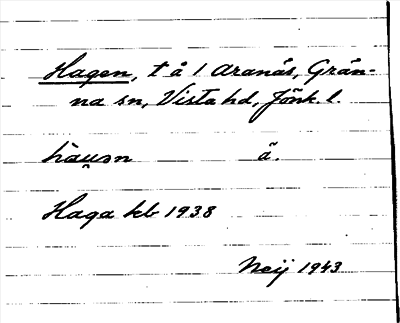 Hagen, t å 1 Aranäs, Grän-
na sn, Vista hd, Jönk. l.
hàu̯ən ä.
Haga kb 1938
Neij 1943